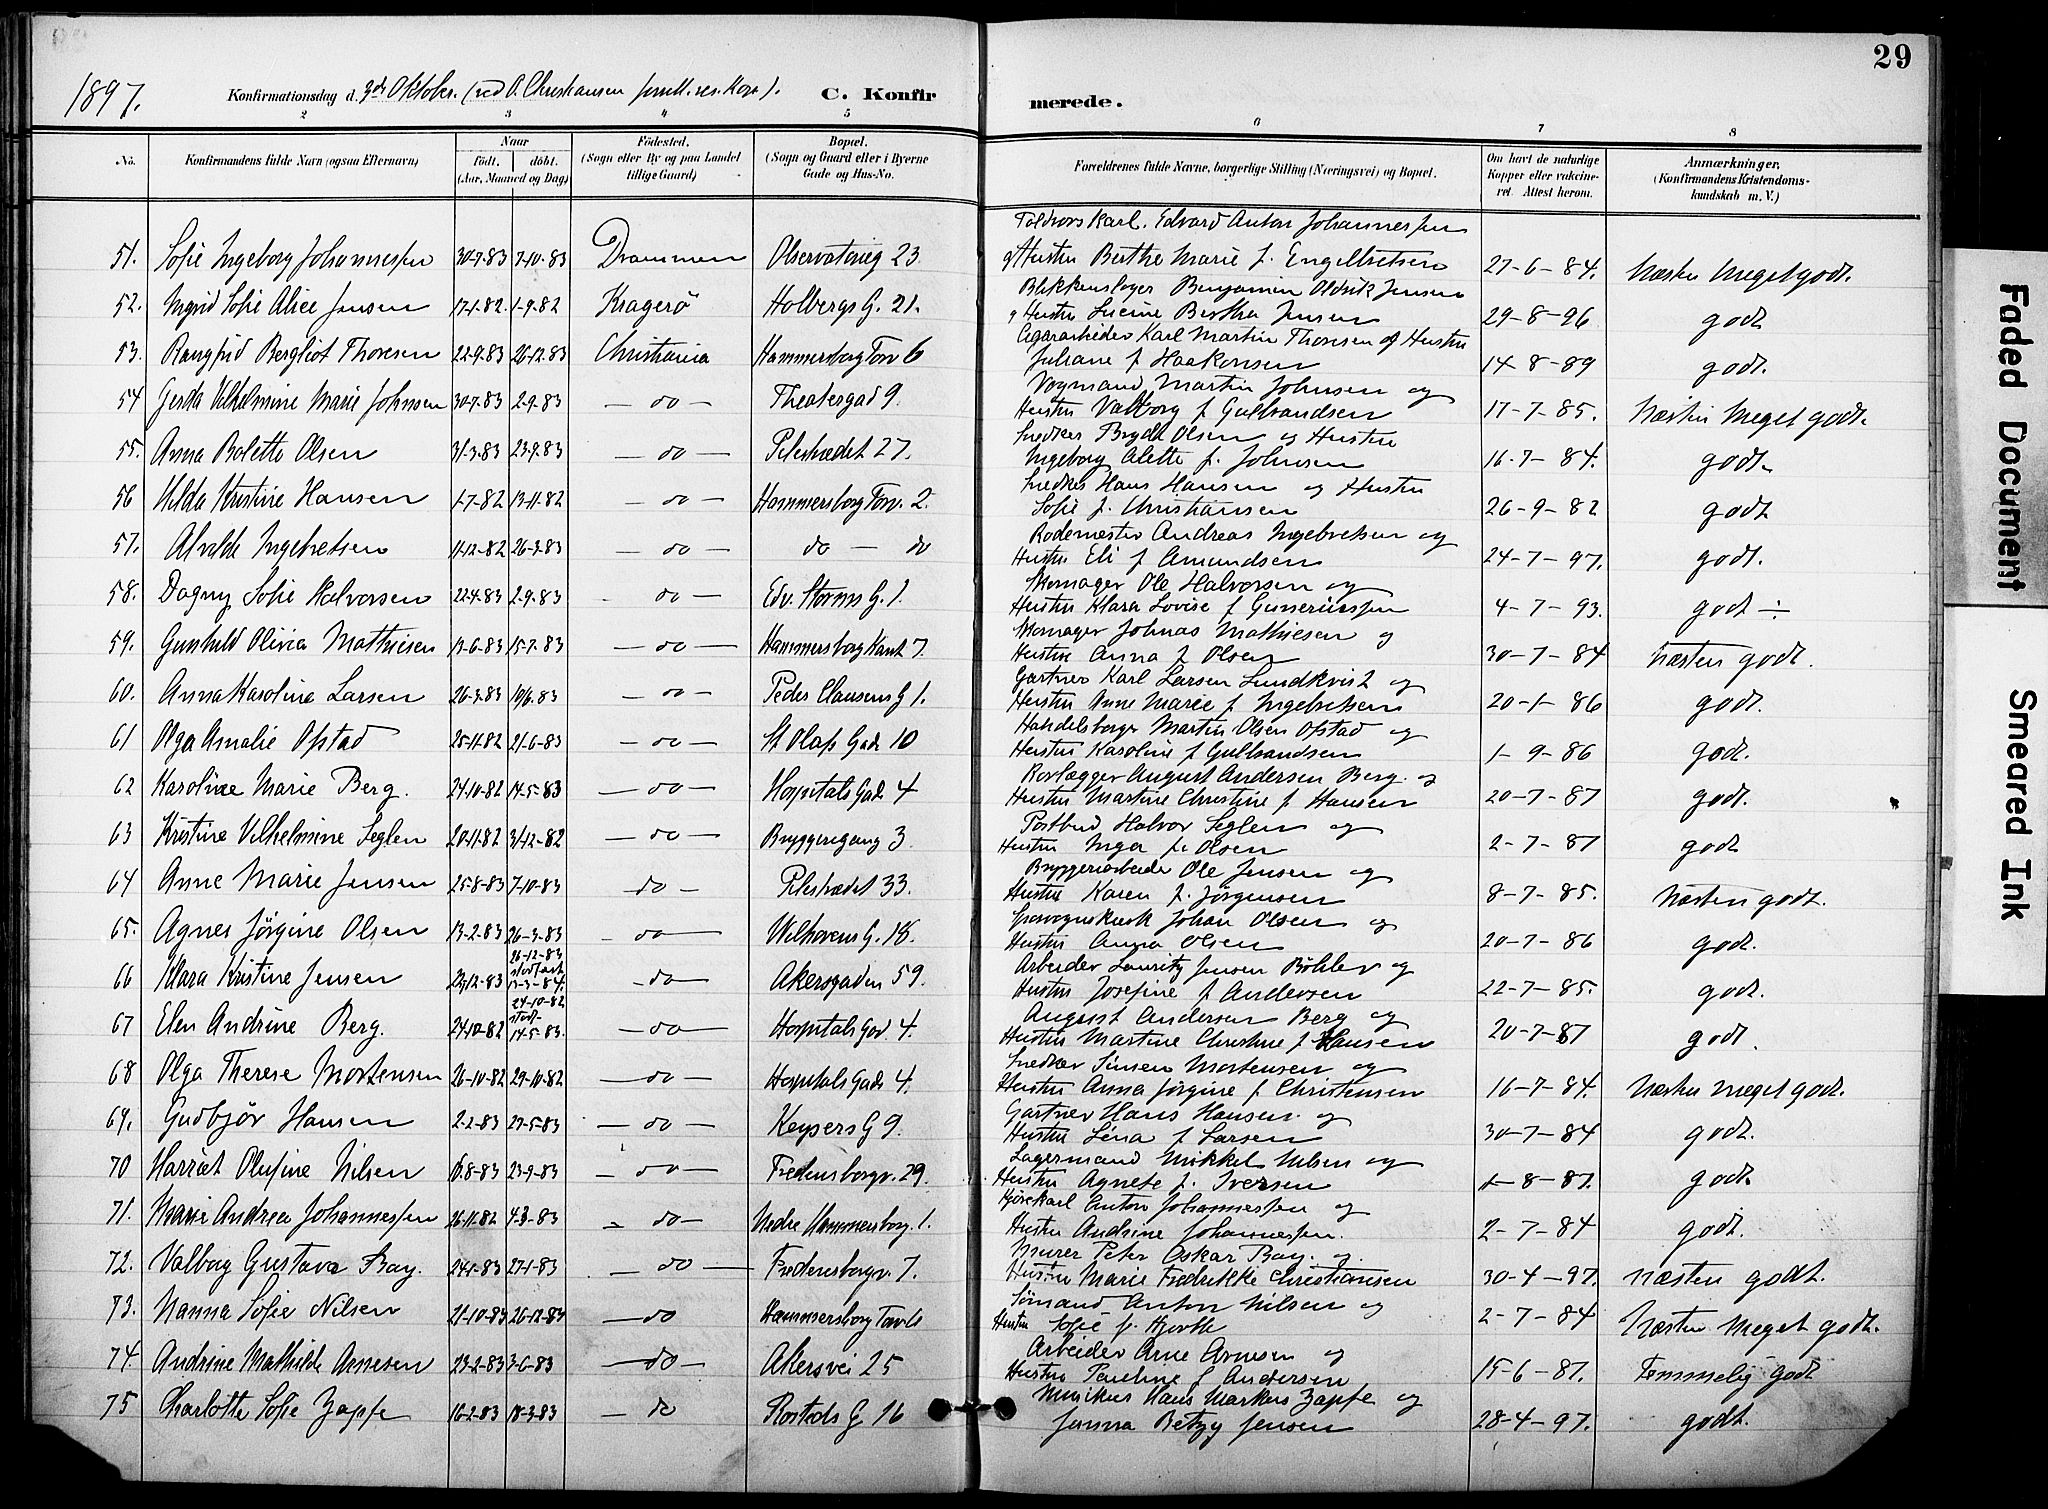 29
1897. Konfirmationsdag d. 3de Oktober. (ved O. Christiansen res. Kap.). C. Konfirmerede.
2 3 4 5 6 7 8
No. Konfirmandens fulde Navn (ogsaa Efternavn) Naar født. døbt. (Aar, Maaned og Dag) Fødested. (Sogn eller By og paa Landet tillige Gaard) Bopæl. (Sogn og Gaard eller i Byerne Gade og Hus-No. Forældrenes fulde Navne, borgerlige Stilling (Næringsvei) og Bopæl. Om havt de naturlige Kopper eller vaccineret. Attest herom. Anmærkninger. (Konfirmandens Kristendomskundskab m. V.)
Edvard Anton Johannessen
51. Sofie Ingeborg Johannessen 30-7-83 7-10-83 Drammen Observatorieg 23 og Hustru Berthe Marie f. Engebretsen 27-6-84. Næsten Meget godt.
Blikkenslager Benjamin Oldrik Jensen
52. Ingrid Sofie Alice Jensen 17-1-82. 1-9-82 Kragerö Holbergs G. 21. og Hustru Lucine Berthea Jensen 29-8-96 godt
Cigararbeider Karl Martin Thoresen og Hustru
53. Rangfrid Bergliot Thoresen 22-9-83 26-12-83 Christiania Hammersborg Torv 6 Juliane f. Haakonsen 14-8-89 godt.
Vognmand Martin Johnsen og
54 Gerda Vilhelmine Marie Johnsen 30-7-83 2-9-83 — do — Theatergad 9. Hustru Valborg f. Gulbrandsen 17-7-85. Næsten Meget godt.
Snedker Olsen og Hustru
55. Anna Bolette Olsen 31-3-83 23-9-83 — do — Pilestrædet 27. Ingeborg Alette f. Johnsen 16-7-84. godt.
Snedker Hans Hansen og Hustru
56 Hilda Kristine Hansen 1-7-82 13-11-82 — do — Hammersborg Torv. 2. Sofie f. Christiansen 26-9-82 godt
Rodemester Andreas Ingebretsen og
57. Alvilde Ingebretsen 11-12-82 26-3-83 — do — do — do Hustru Eli f Amundsen 24-7-97. godt.
Skomager Ole Halvorsen og
58. Dagny Sofie Halvorsen 22-4-83 2-9-83 — do — Edv. Storms G. 1. Hustru Klara Lovise f Gunerius­sen 4-7-93. godt ÷
Skomager Johnas Mathiesen og
59. Gunhild Olivia Mathiesen 13-6-83 15-7-83 — do — Hammersborg Kant 7. Hustru Anna f Olsen 30-7-84 Næsten godt.
Gartner Karl Larsen Lundkvist og
60. Anna Karoline Larsen 26-3-83 10/6.83 — do — Peder Clausens G 1. Hustru Anne Marie f. Ingebretsen 20-1-86 godt.
Handelsborger Martin Olsen Opstad og
61 Olga Amalie Opstad 25-11-82 21-6-83 — do — St Olafs Gade 10 Hustru Karoline f Gulbrandsen 1-9-86 godt.
Rorlægger August Andersen Berg. og
62 Karoline Marie Berg. 24-10-82 14-5-83 — do — Hospitals Gad. 4 Hustru Martine Christine f Hansen 20-7-87 godt.
Postbud Halvor Seglen og
63 Kristine Vilhelmine Seglen 20-11-82 31-12-82 — do — Bryggerigang 3. Hustru Inga f. Olsen 2-7-87 godt
Bryggeriarbeider Ole Jensen og
64 Anne Marie Jensen 25-8-83 7-10-83 do — Pilestrædet 33. Hustru Karen f. Jørgensen 8-7-85. Næsten godt.
Sporvognskusk Johan Olsen og
65. Agnes Jörgine Olsen 13-2-83 26-3-83 — do — Welhavens G. 18. Hustru Anna Olsen 20-7-86 godt.
26-12-83 Arbeider Lauritz Jensen Böhler og
66 Klara Kristine Jensen 23-12-83 13-3-84. — do — Akersgaden 59. Hustru Josefine f Andersen 22-7-85. godt.
24-10-82 August Andersen Berg og
67 Elen Andrine Berg. 24-10-82 14-5-83. — do — Hospitals Gad. 4. Hustru Martine Christine f Hansen 20-7-87 godt.
Snedker Simen Mortensen og
68 Olga Therese Mortensen 26-10-82 29-10-82 — do — Hospitals Gade 4. Hustru Anna Jörgine f Christensen 16-7-84. Næsten meget godt.
Gartner Hans Hansen og
69. Gudbjör Hansen 2-2-83 27-5-83 — do — Keysers G 9. Hustru Lina f Larsen 30-7-84 godt.
Lagermand Mikkel Nilsen og
70 Harriet Olufine Nilsen 10.8-83 23-9-83 — do — Fredensborgv. 29. Hustru Agnete f. Iversen 1-8-87. godt.
Kjørekarl Anton Johannessen og
71. Marie Andrea Johannessen 26-11-82 4-3-83 — do — Nedre Hammersborg. 1. Hustru Andrine Johannessen. 2-7-84 godt.
Murer Peter Oskar Bay. og
72. Valborg Gustava Bay. 24-1-83 27-1-83 — do — Fredensborgv. 7. Hustru Marie Fredrikke Christiansen 30-4-97. Næsten godt.
Sømand Anton Nilsen og
73. Nanna Sofie Nilsen 21-10-83 26-12-83 — do Hammersborg Torv 6 Hustru Sofie f. Hjorth 2-7-84 Næsten Meget godt.
Arbeider Arne Arnesen og
74. Andrine Mathilde Arnesen 23-2-83 3-6-83 — do — Akersvei 25 Hustru Pauline f Andersen 15-6-87. Temmelig godt
Musikus Hans Markus Zapfe og
75 Charlotte Sofie Zapfe 16-2-83 18-3-83 — do Rosteds G 16 Janna Betzy Jensen 28-4-97. godt.
Faded Document
Smeared Ink